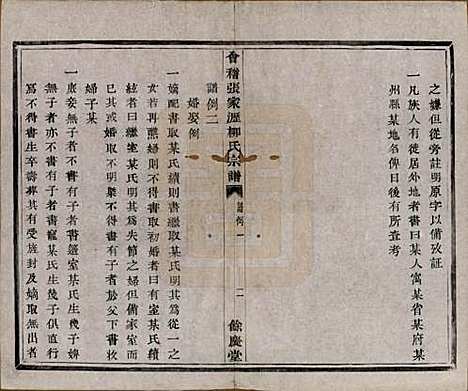 之嫌但從旁註明原字以備攷証
一凡族人有徒居外地者書曰某人寓某省某府某
州縣某地名俾日後有所查考
會稽張家瀝柳氏宗譜
譜例一
二
餘慶堂
譜例二
婚娶例
一嫡配書取某氏續則書繼取某氏明其為從一之
女若再醮婦則不得書取初婚者曰有室某氏續
曰又有室某氏明其為失節之婦但備家室而
已其或苟取不明槩不得書有子者於父下書
婦子某
一庶妾無子者不書有子者書簉室某氏生幾子婢
無子者亦不得書有子者書寵某氏生幾子俱直行
寫不得書生卒壽葬其有受旌封及嫡取無出者